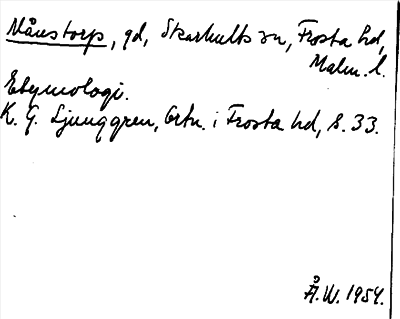 Månstorp, gd, Skarhults sn, Frosta hd,
Malm. l.
Etymologi.
K. G. Ljunggren, Ortn. i Frosta hd, s. 33.
Å.W. 1954.